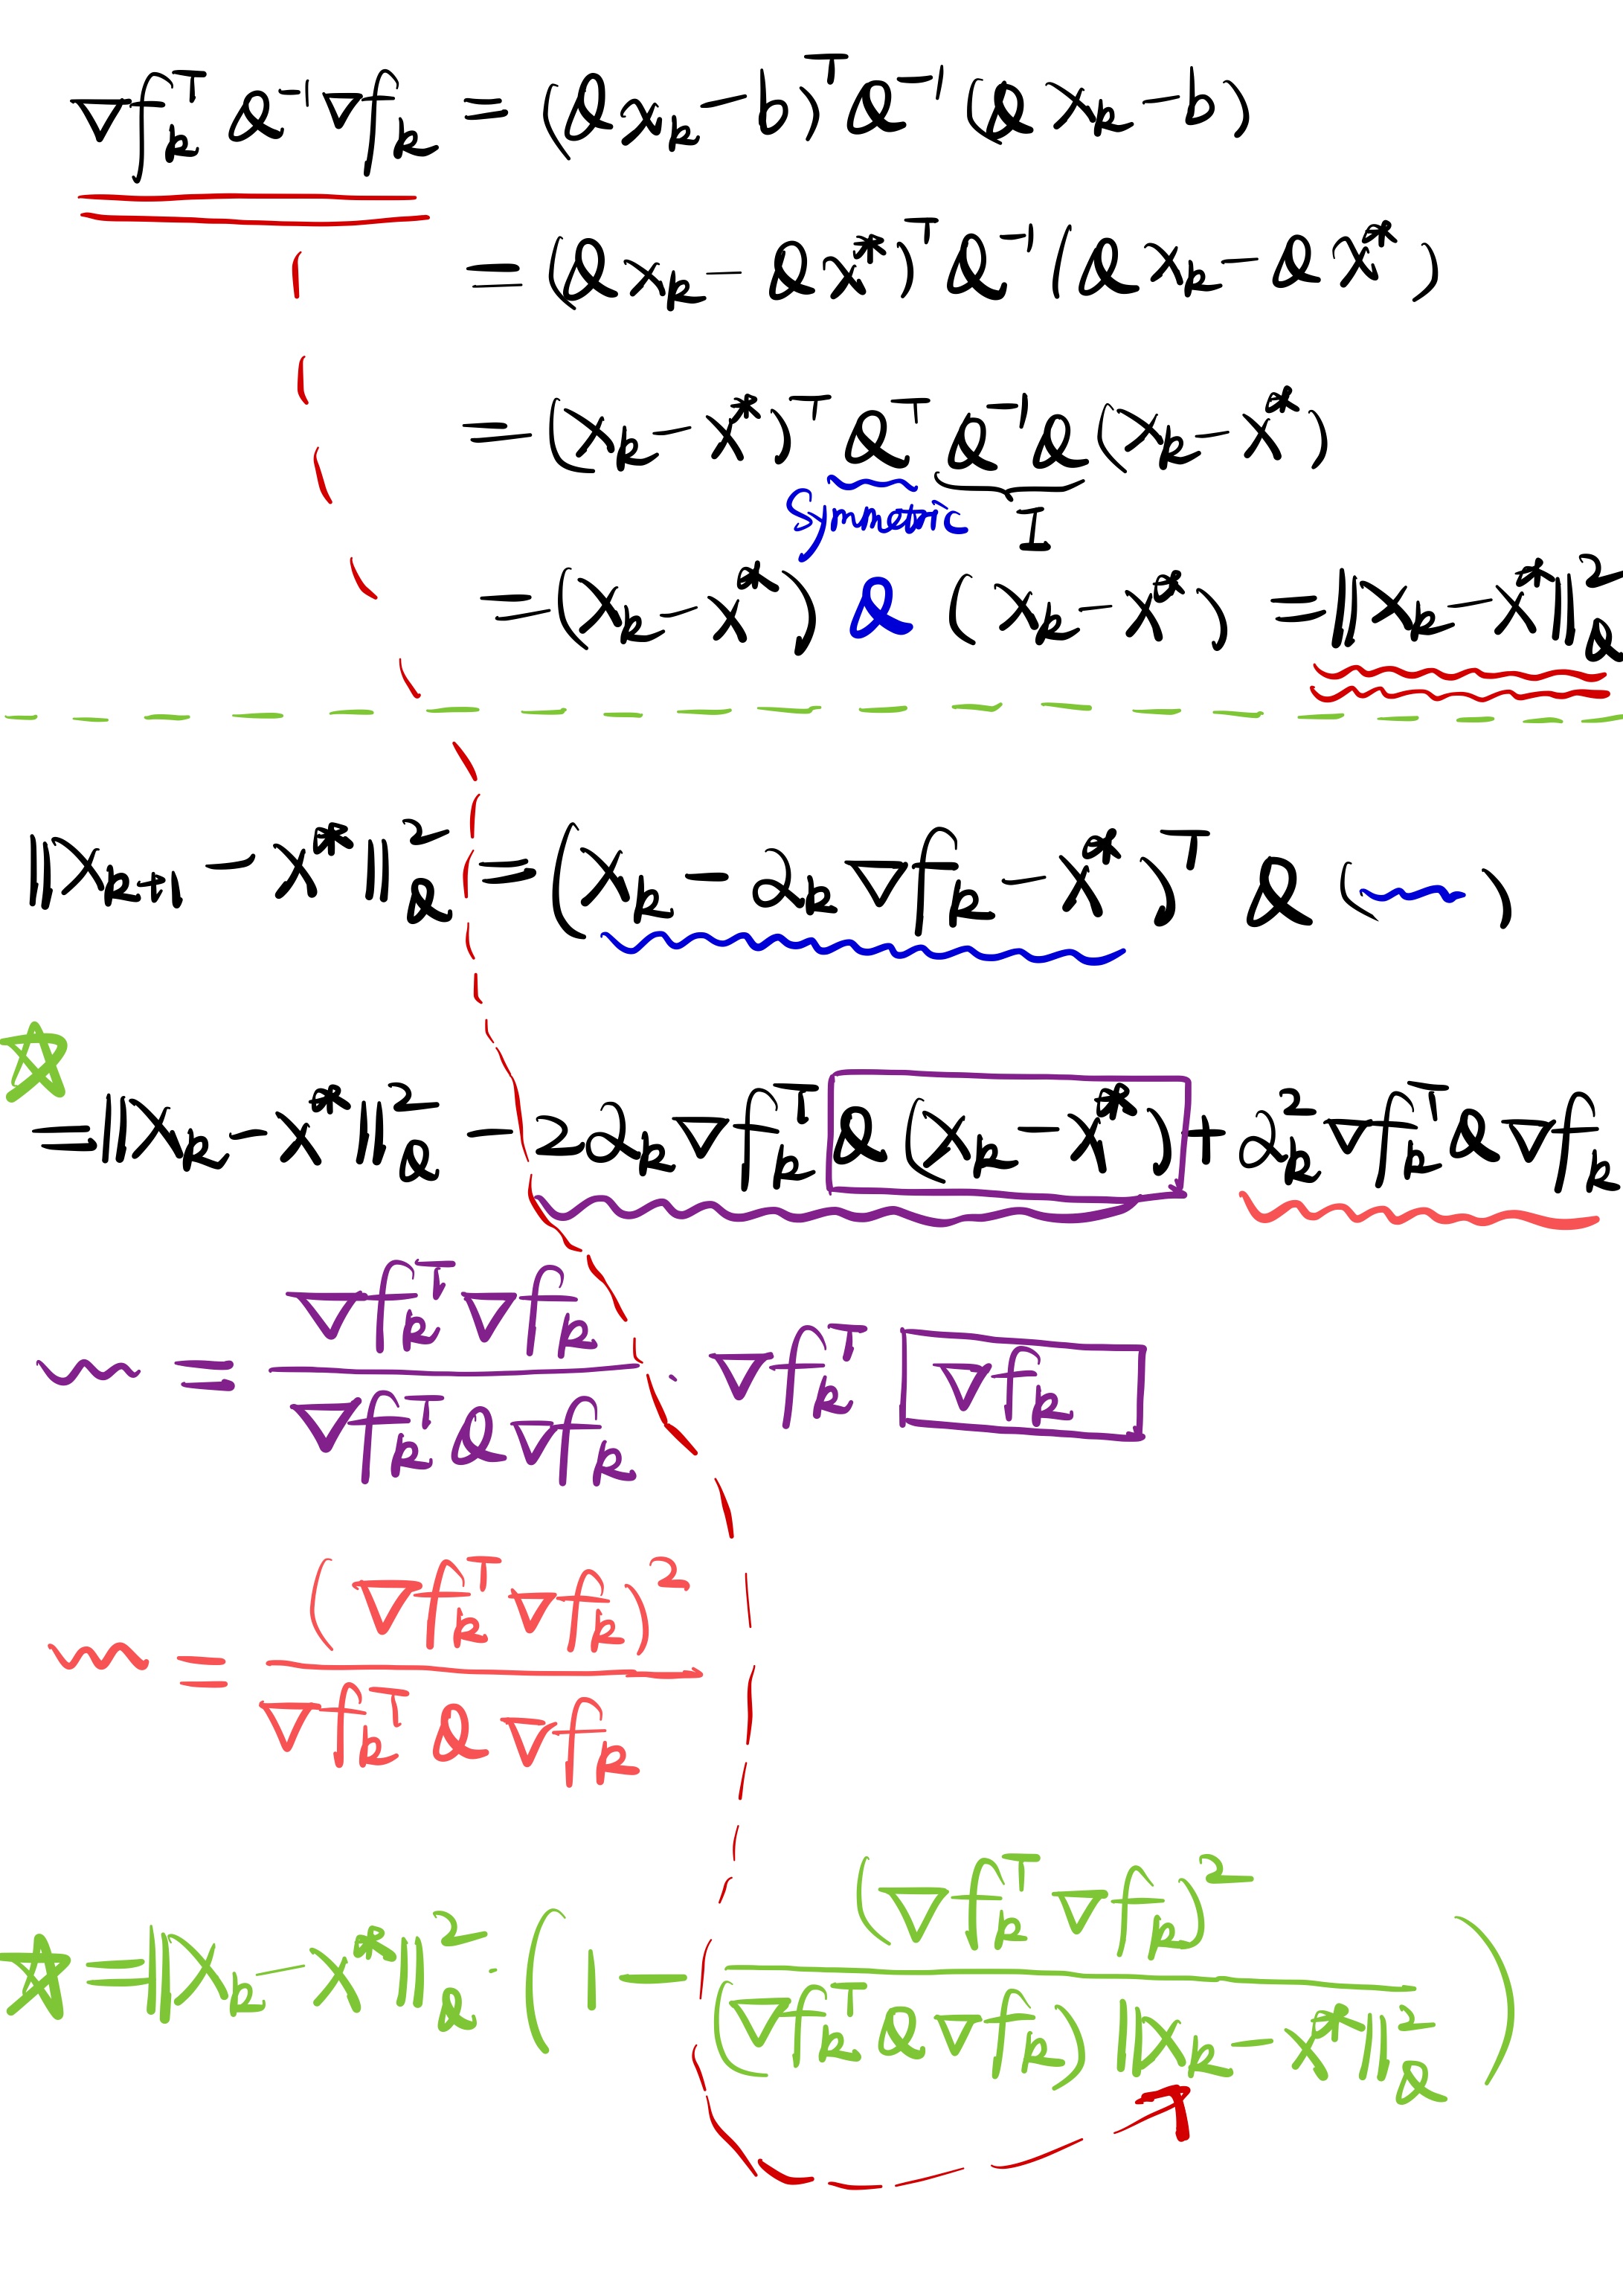 ∇f_k^T Q^{-1} ∇f_k = (Q x_k - b)^T Q^{-1} (Q x_k - b)
= (Q x_k - Q x^*)^T Q^{-1} (Q x_k - Q x^*)
= (x_k - x^*)^T Q^T Q^{-1} Q (x_k - x^*)
Symmetric I
= (x_k - x^*) Q (x_k - x^*) = ||x_k - x^*||_Q^2
||x_{k+1} - x^*||_Q^2 = (x_k - α_k ∇f_k - x^*)^T Q (~)
☆ = ||x_k - x^*||_Q^2 - 2α_k ∇f_k^T Q (x_k - x^*) + α_k^2 ∇f_k^T Q ∇f_k
~ = \frac{∇f_k^T ∇f_k}{∇f_k^T Q ∇f_k} · ∇f_k^T ∇f_k
~ = \frac{(∇f_k^T ∇f_k)^2}{∇f_k^T Q ∇f_k}
☆ = ||x_k - x^*||_Q^2 · (1 - \frac{(∇f_k^T ∇f_k)^2}{(∇f_k^T Q ∇f_k) ||x_k - x^*||_Q^2})